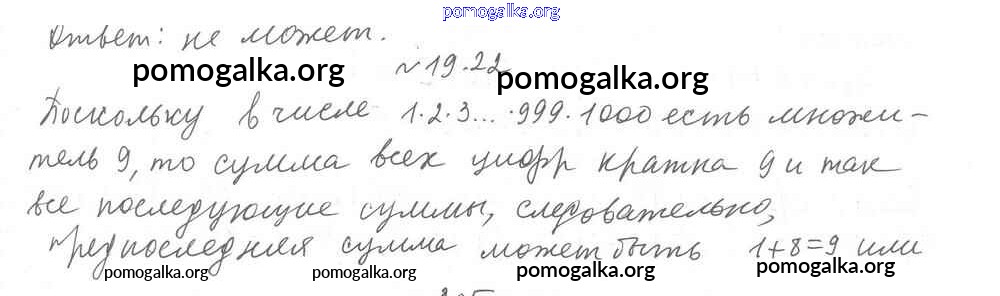 pomogalka.org
Ответ: не может.
pomogalka.org
№19.22
pomogalka.org
Поскольку в числе 1·2·3...·999·1000 есть множи-
тель 9, то сумма всех цифр кратна 9 и так
все последующие суммы, следовательно,
предпоследняя сумма может быть 1+8=9 или
pomogalka.org pomogalka.org pomogalka.org pomogalka.org